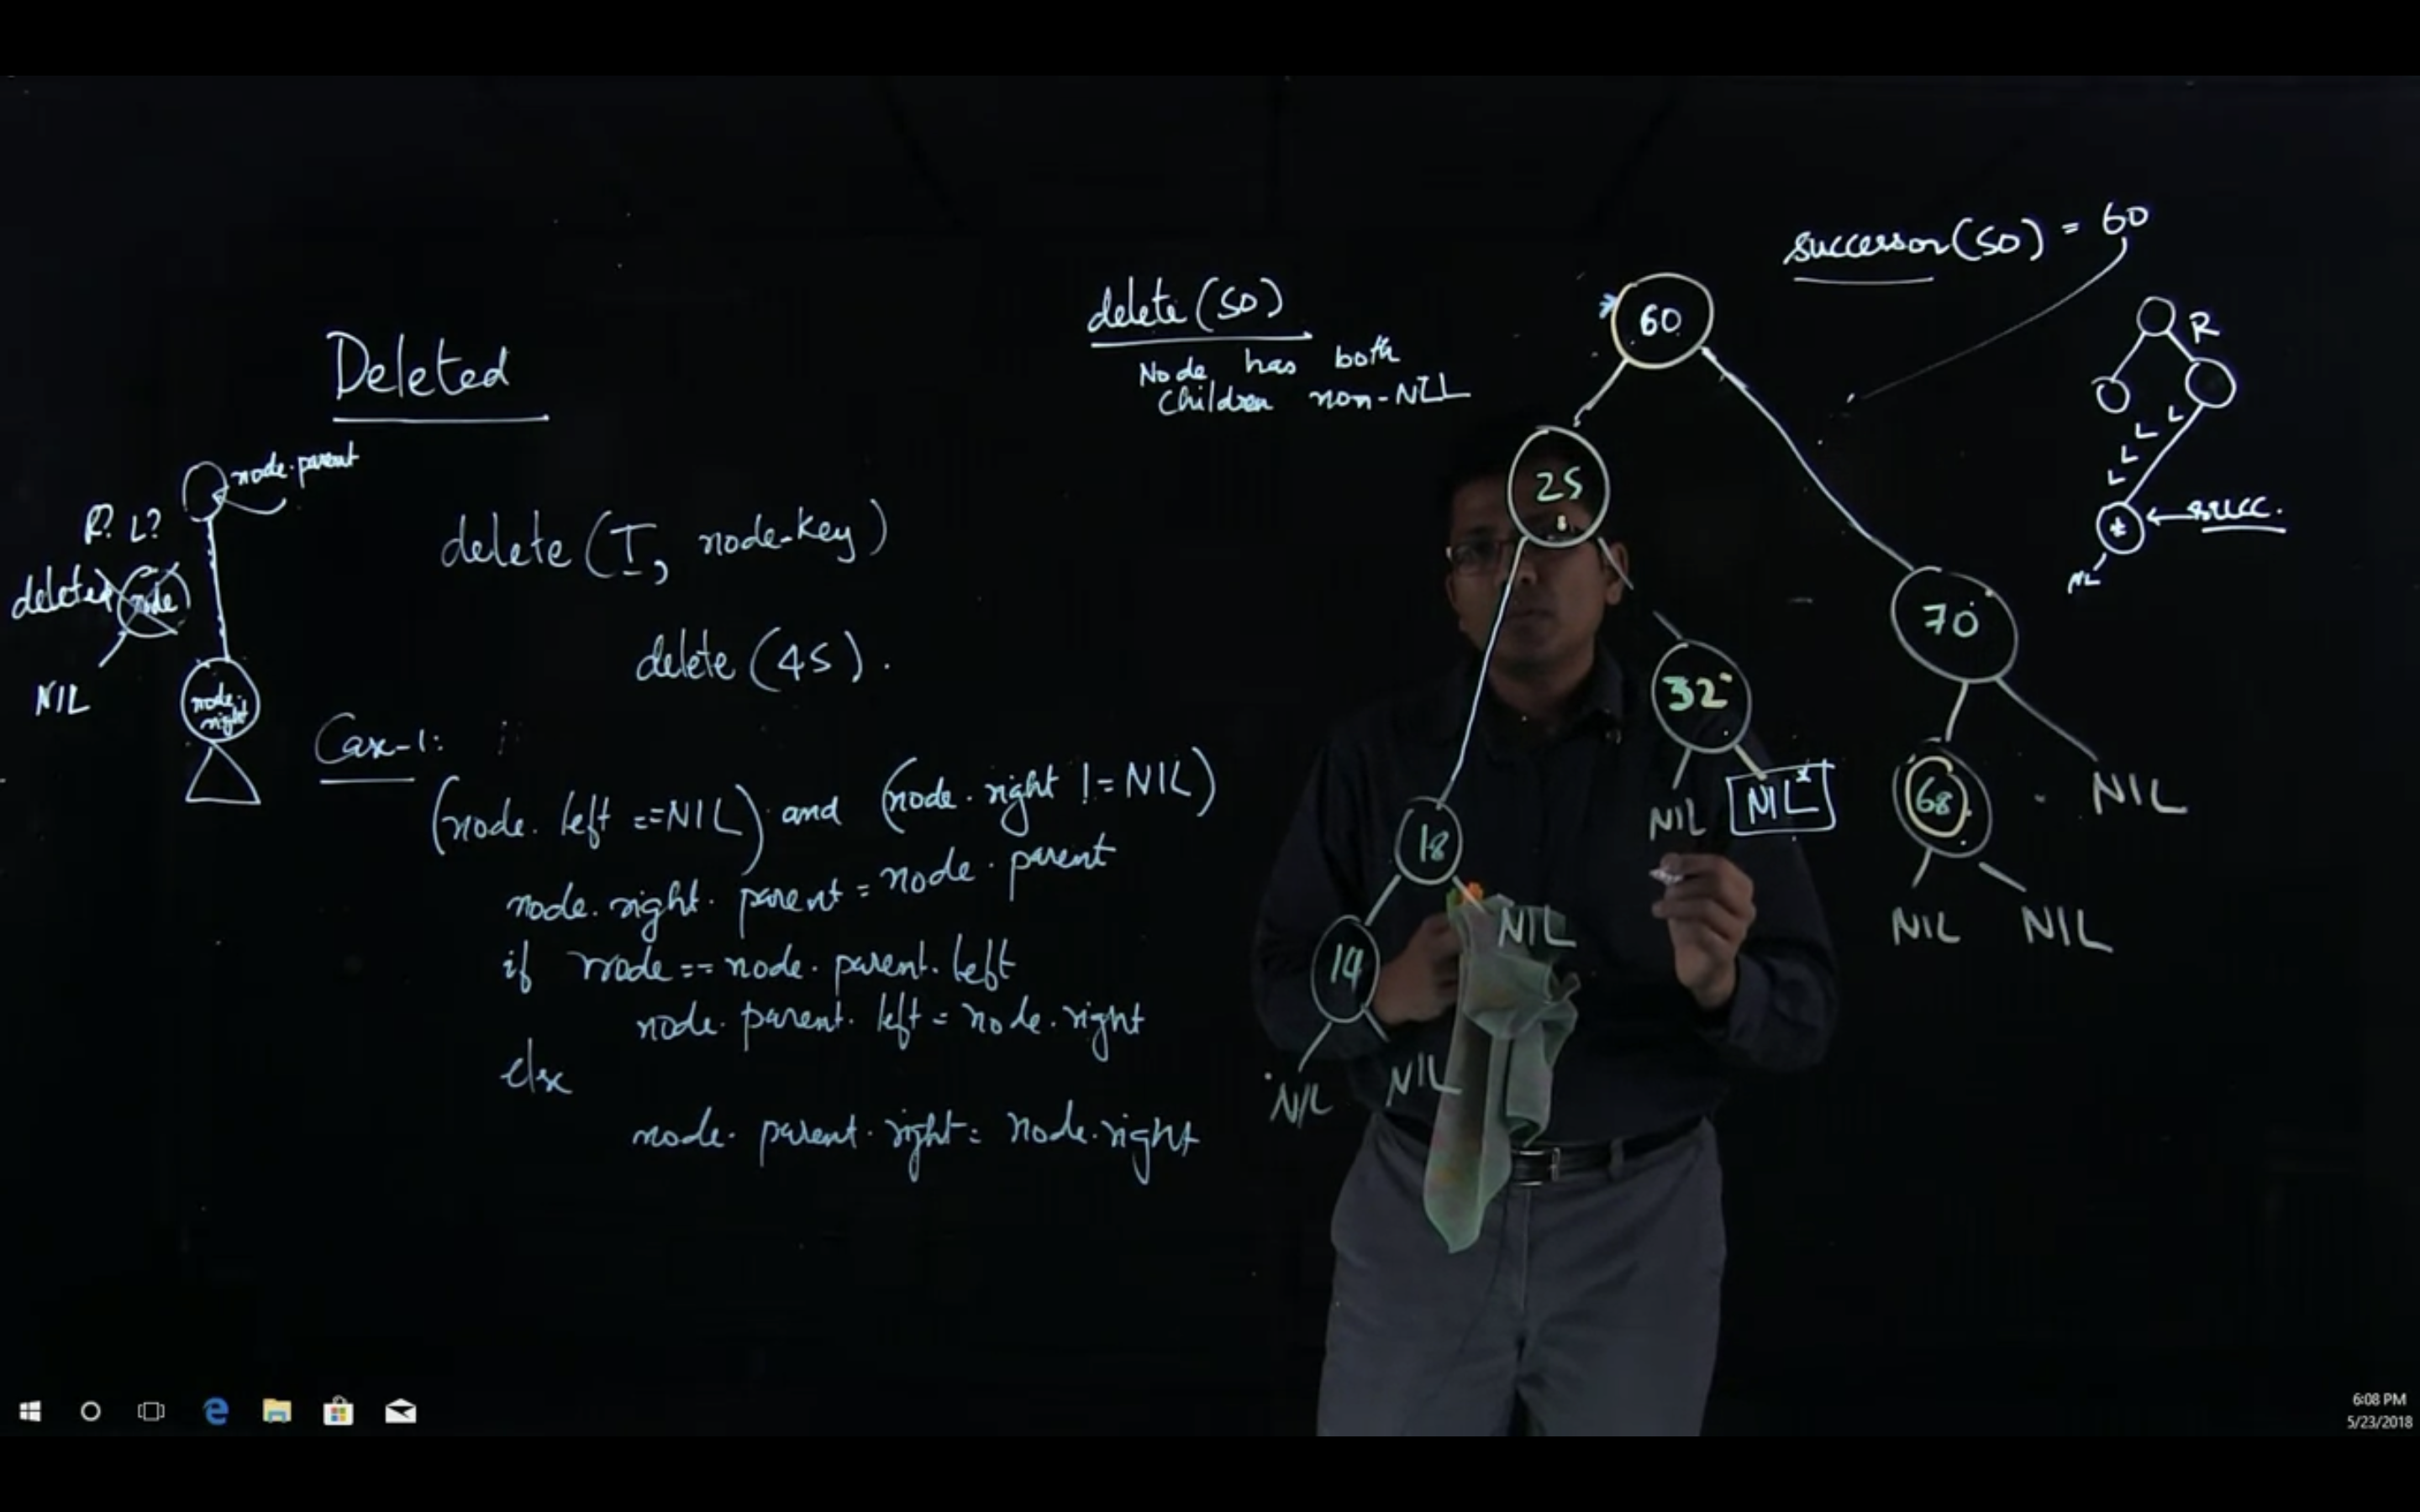 Deleted
node.parent
R? L?
deleted node
NIL
node.right
delete (T, node-key)
delete (45).
Case-1:
(node.left ==NIL) and (node.right != NIL)
node.right.parent = node.parent
if node == node.parent.left
node.parent.left = node.right
else
node.parent.right = node.right
delete (50)
Node has both
children non-NIL
successor(50) = 60
60
25
32
70
18
NIL
NIL
68
NIL
14
NIL
NIL
NIL
NIL
NIL
R
L
L
L
L
*
succ.
NIL
6:08 PM
5/23/2018